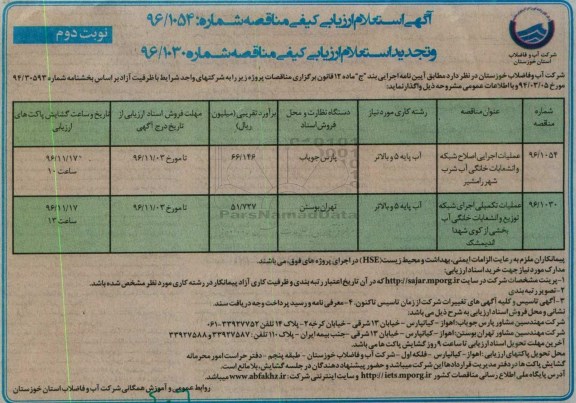 آگهی استعلام ارزیابی کیفی مناقصه شماره: ۹۶/۱۰۵۴
و تجدید استعلام ارزیابی کیفی مناقصه شماره ۹۶/۱۰۳۰
نوبت دوم
شرکت آب و فاضلاب
استان خوزستان
شرکت آب و فاضلاب خوزستان در نظر دارد مطابق آیین نامه اجرایی بند "ج" ماده ۱۲ قانون برگزاری مناقصات پروژه زیر را به شرکتهای واجد شرایط با ظرفیت آزاد بر اساس بخشنامه شماره ۹۴/۳۰۵۹۳
مورخ ۹۴/۰۳/۰۵ و با اطلاعات عمومی مشروحه ذیل واگذار نماید:
شماره مناقصه
عنوان مناقصه
رشته کاری مورد نیاز
دستگاه نظارت و محل فروش اسناد
برآورد تقریبی (میلیون ریال)
مهلت فروش اسناد ارزیابی از تاریخ درج آگهی
تاریخ و ساعت گشایش پاکت های ارزیابی
۹۶/۱۰۵۴
عملیات اجرایی اصلاح شبکه
و انشعابات خانگی آب شرب
شهر رامشیر
آب پایه ۵ و بالاتر
پارس جویاب
۶۶/۱۴۶
تا مورخ ۹۶/۱۱/۰۳
۹۶/۱۱/۱۷
ساعت ۱۰
۹۶/۱۰۳۰
عملیات تکمیلی اجرای شبکه
توزیع و انشعابات خانگی آب
بخشی از کوی شهدا
اندیمشک
آب پایه ۵ و بالاتر
تهران بوستن
۵۱/۷۳۷
تا مورخ ۹۶/۱۱/۰۳
۹۶/۱۱/۱۷
ساعت ۱۳
ParsNamadData
پیمانکاران ملزم به رعایت الزامات ایمنی، بهداشت و محیط زیست (HSE) در اجرای پروژه های فوق، می باشند.
مدارک مورد نیاز جهت خرید اسناد ارزیابی:
۱-پرینت مشخصات شرکت در سایت http://sajar.mporg.ir که در آن تاریخ اعتبار رتبه بندی و ظرفیت کاری آزاد پیمانکار در رشته کاری مورد نظر مشخص شده باشد.
۲-تصویر رتبه بندی
۳-آگهی تاسیس و کلیه آگهی های تغییرات شرکت از زمان تاسیس تاکنون. ۴-معرفی نامه و رسید پرداخت وجه دریافت سند.
نشانی و محل فروش اسناد ارزیابی به شرح ذیل می باشد:
شرکت مهندسین مشاور پارس جویاب: اهواز - کیانپارس - خیابان ۱۳ شرقی - خیابان کرخه ۲ - پلاک ۱۴ تلفن ۳۳۹۲۷۷۵۲-۰۶۱
شرکت مهندسین مشاور تهران بوستن: اهواز - کیانپارس - خیابان ۱۳ شرقی - جنب بیمه ایران - پلاک ۱۱۰ تلفن: ۳۳۹۲۷۵۸۷ و ۳۳۹۲۷۵۸۸
آخرین مهلت تحویل اسناد ارزیابی تا ساعت ۹ روز گشایش پاکت ها می باشد.
محل تحویل پاکتهای ارزیابی: اهواز - کیانپارس - فلکه اول - شرکت آب و فاضلاب خوزستان - طبقه پنجم - دفتر حراست امور محرمانه
گشایش پاکت ها در دفتر مدیریت قراردادها این شرکت میباشد و حضور پیشنهاد دهندگان در جلسه گشایش، بلامانع است.
آدرس پایگاه ملی اطلاع رسانی مناقصات کشور http://iets.mporg.ir و سایت اینترنتی شرکت: www.abfakhz.ir میباشد.
روابط عمومی و آموزش همگانی شرکت آب و فاضلاب استان خوزستان